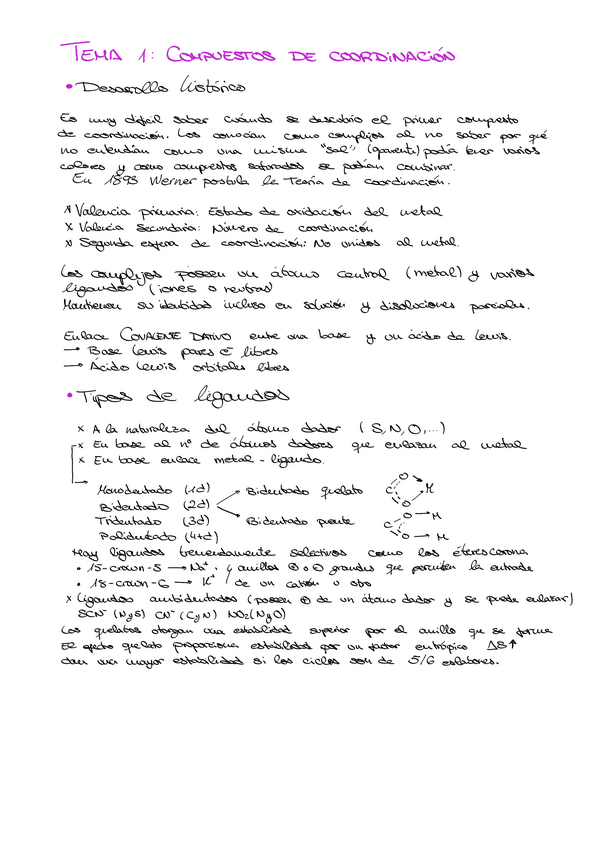 TEMA 1: COMPUESTOS DE COORDINACIÓN
• Desarrollo histórico
Es muy difícil saber cuándo se descubrio el primer compuesto
de coordinación. Los conocían como complejos al no saber por qué
no entendían como una misma "sal" (aparente) podía tener varios
colores y como compuestos saturados se podían combinar.
En 1893 Werner postula la Teoría de coordinación.
x Valencia primaria: Estado de oxidación del metal
x Valencia Secundaria: Número de coordinación
x Segunda esfera de coordinación: No unidos al metal.
Los complejos poseen un átomo central (metal) y varios
ligandos (iones o neutros)
Mantienen su identidad incluso en solución y disoluciones parciales.
Enlace COVALENTE DATIVO entre una base y un ácido de Lewis.
→ Base Lewis pares e⁻ libres
→ Ácido Lewis orbitales libres
• Tipos de ligandos
x A la naturaleza del átomo dador (S, N, O, ...)
x En base al nº de átomos dadores que enlazan al metal
x En base enlace metal - ligando.
Monodentado (1d)
Bidentado (2d) → Bidentado quelato C O O M
Tridentado (3d) → Bidentado puente C O → M O → M
Polidentado (4+d)
Hay ligandos tremendamente selectivos como los éteres corona
• 15-crown-5 → Na⁺ y anillos ⊕ o ⊖ grandes que permiten la entrada
• 18-crown-6 → K⁺ / de un catión u otro
x Ligandos ambidentados (poseen ⊕ de un átomo dador y se puede enlazar)
SCN⁻ (N y S) CN⁻ (C y N) NO₂ (N y O)
Los quelatos otorgan una estabilidad superior por el anillo que se forma
El efecto quelato proporciona estabilidad por un factor entrópico ΔS↑
dan una mayor estabilidad si los ciclos son de 5/6 eslabones.